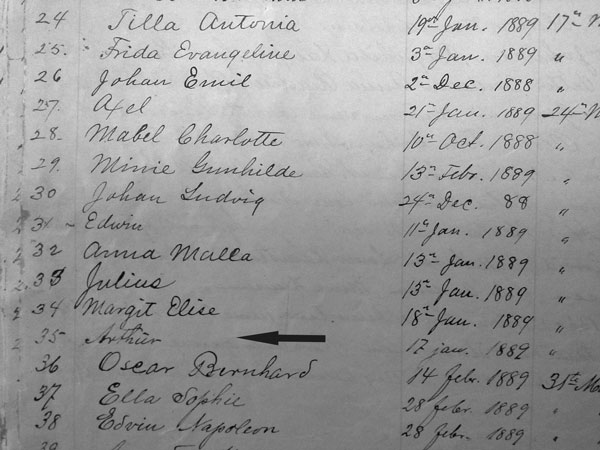 24 Tilla Antonia 19de Jan. 1889 17de
25. Frida Evangeline 3de Jan. 1889 "
26 Johan Emil 2de Dec. 1888 "
27. Axel 21de Jan. 1889 24de
28. Mabel Charlotte 10de Oct. 1888 "
29. Minie Gunhilde 13de Febr. 1889 "
30 Johan Ludvig 24de Dec. 88 "
31 Edwin 11te Jan. 1889 "
32 Anna Malla 13de Jan. 1889 "
33 Julius 15de Jan. 1889 "
34 Margit Elise 18de Jan. 1889 "
35 Arthur 17 jan. 1889 "
36 Oscar Bernhard 14 febr. 1889 31te
37 Ella Sophie 28 febr. 1889 "
38 Edvin Napoleon 28 febr. 1889 "
39